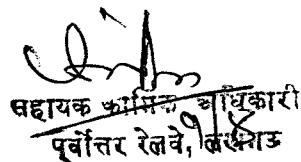 सहायक कार्मिक अधिकारी
पूर्वोत्तर रेलवे, लखनऊ